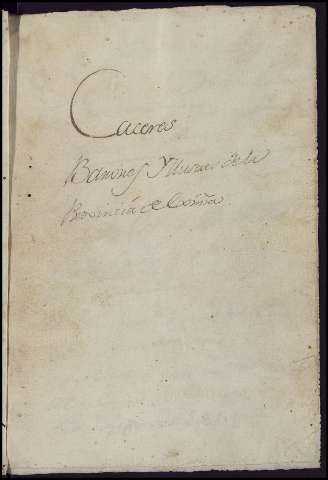 Caceres
Barones Yllustres de la
Provincia de